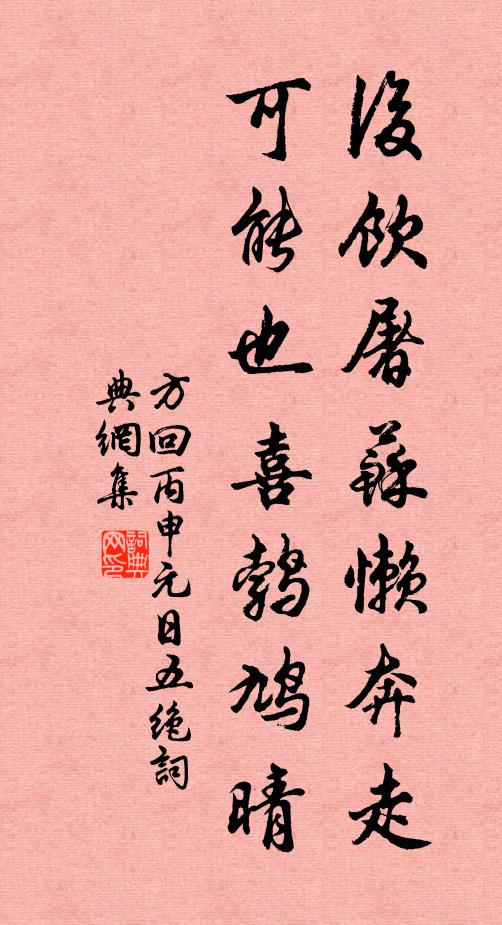 後飲屠蘇懶奔走
可能也喜鵓鳩晴
方回丙申元日五絶詞
典網集
詞典網印